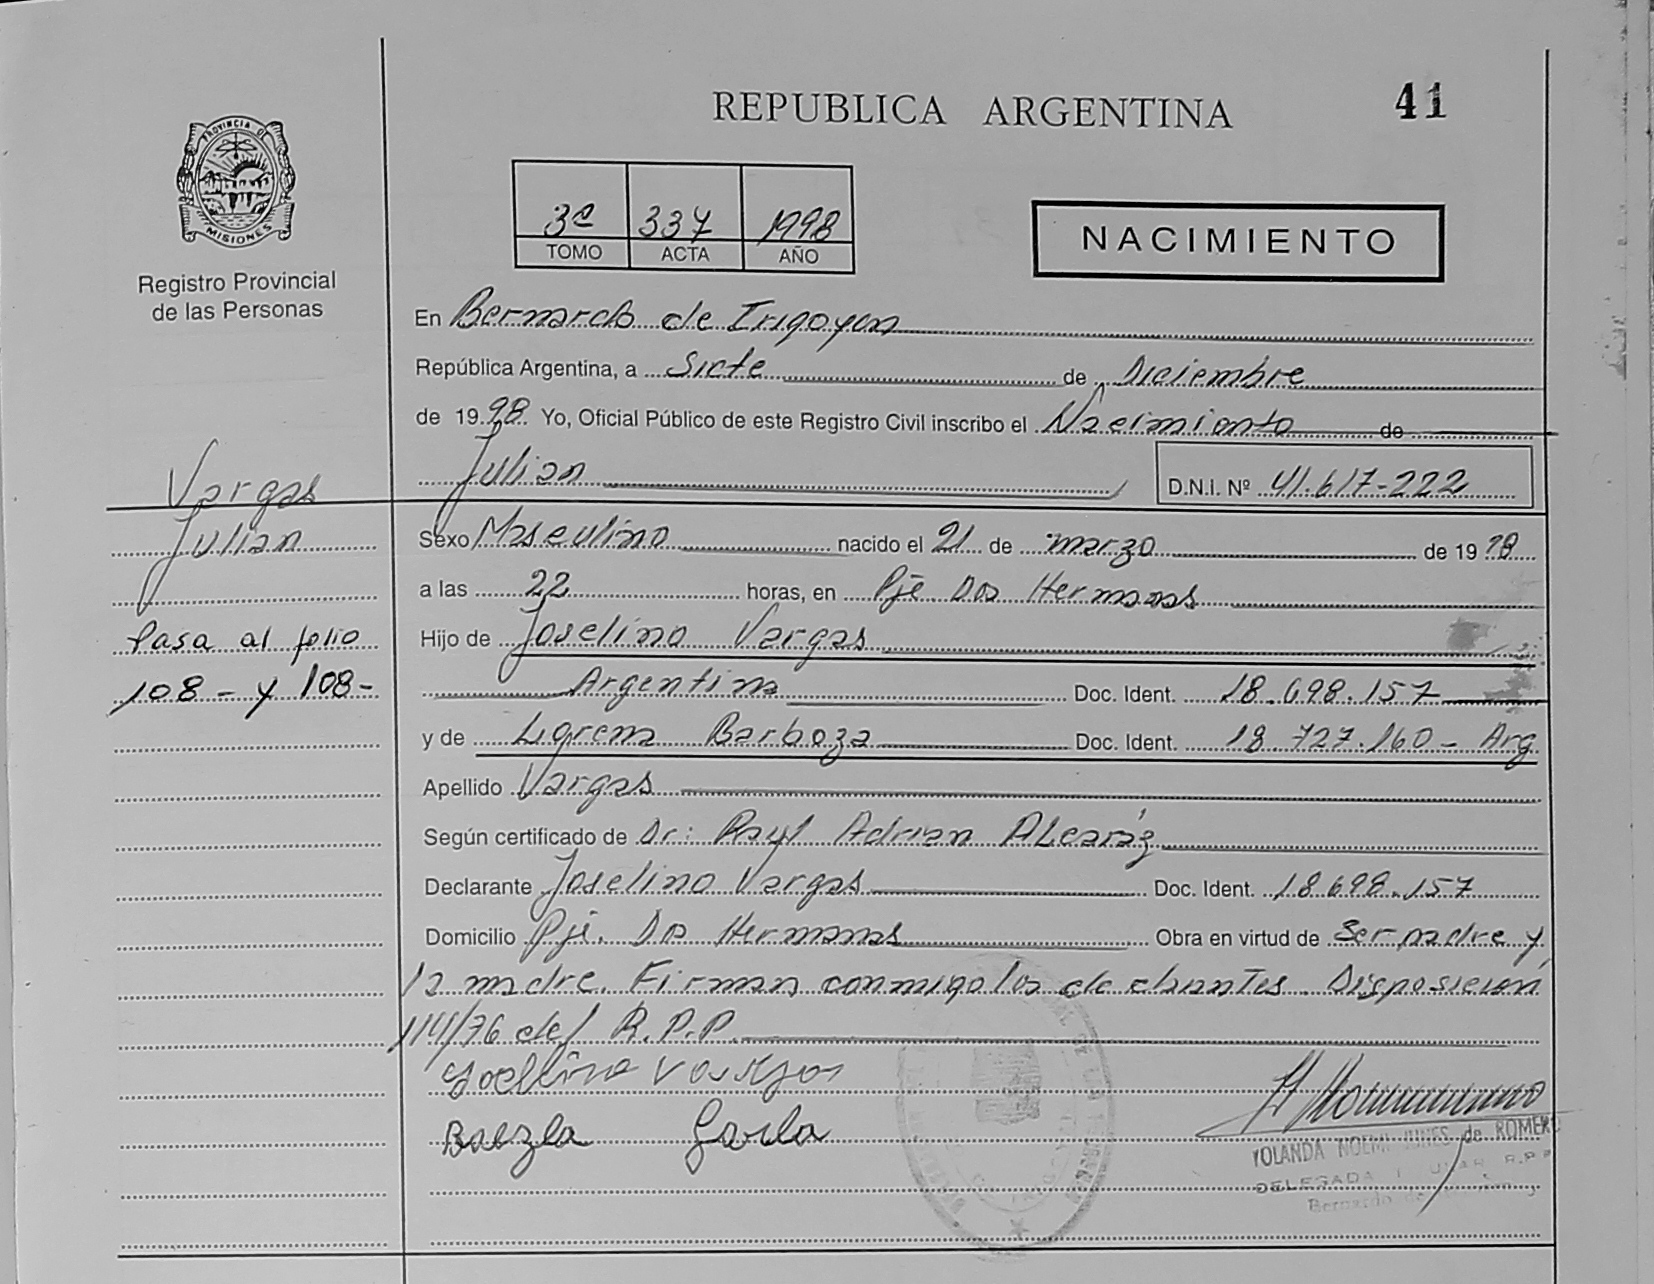 REPUBLICA ARGENTINA
41
PROVINCIA DE
MISIONES
Registro Provincial
de las Personas
3º 337 1998
TOMO ACTA AÑO
NACIMIENTO
En Bernardo de Irigoyen
República Argentina, a Siete de Diciembre
de 1998 Yo, Oficial Público de este Registro Civil inscribo el Nacimiento de
Julian D.N.I. Nº 41.617-222
Vargas
Julian
Pasa al folio
108 - y 108 -
Sexo Masculino nacido el 21 de marzo de 1998
a las 22 horas, en Pje Dos Hermanas
Hijo de Joselino Vargas
Argentina Doc. Ident. 18.698.157
y de Barboza Doc. Ident. 18 727.160 - Arg.
Apellido Vargas
Según certificado de Dr: Raul Adrian ALcaráz
Declarante Joselino Vargas Doc. Ident. 18.698.157
Domicilio Pje. Dos Hermanas Obra en virtud de Ser padre y
la madre. Firman conmigo los Disposicion
114/76 del R.P.P.
YOLANDA NOEMI de ROMERO
DELEGADA R.P.P
Bernardo de